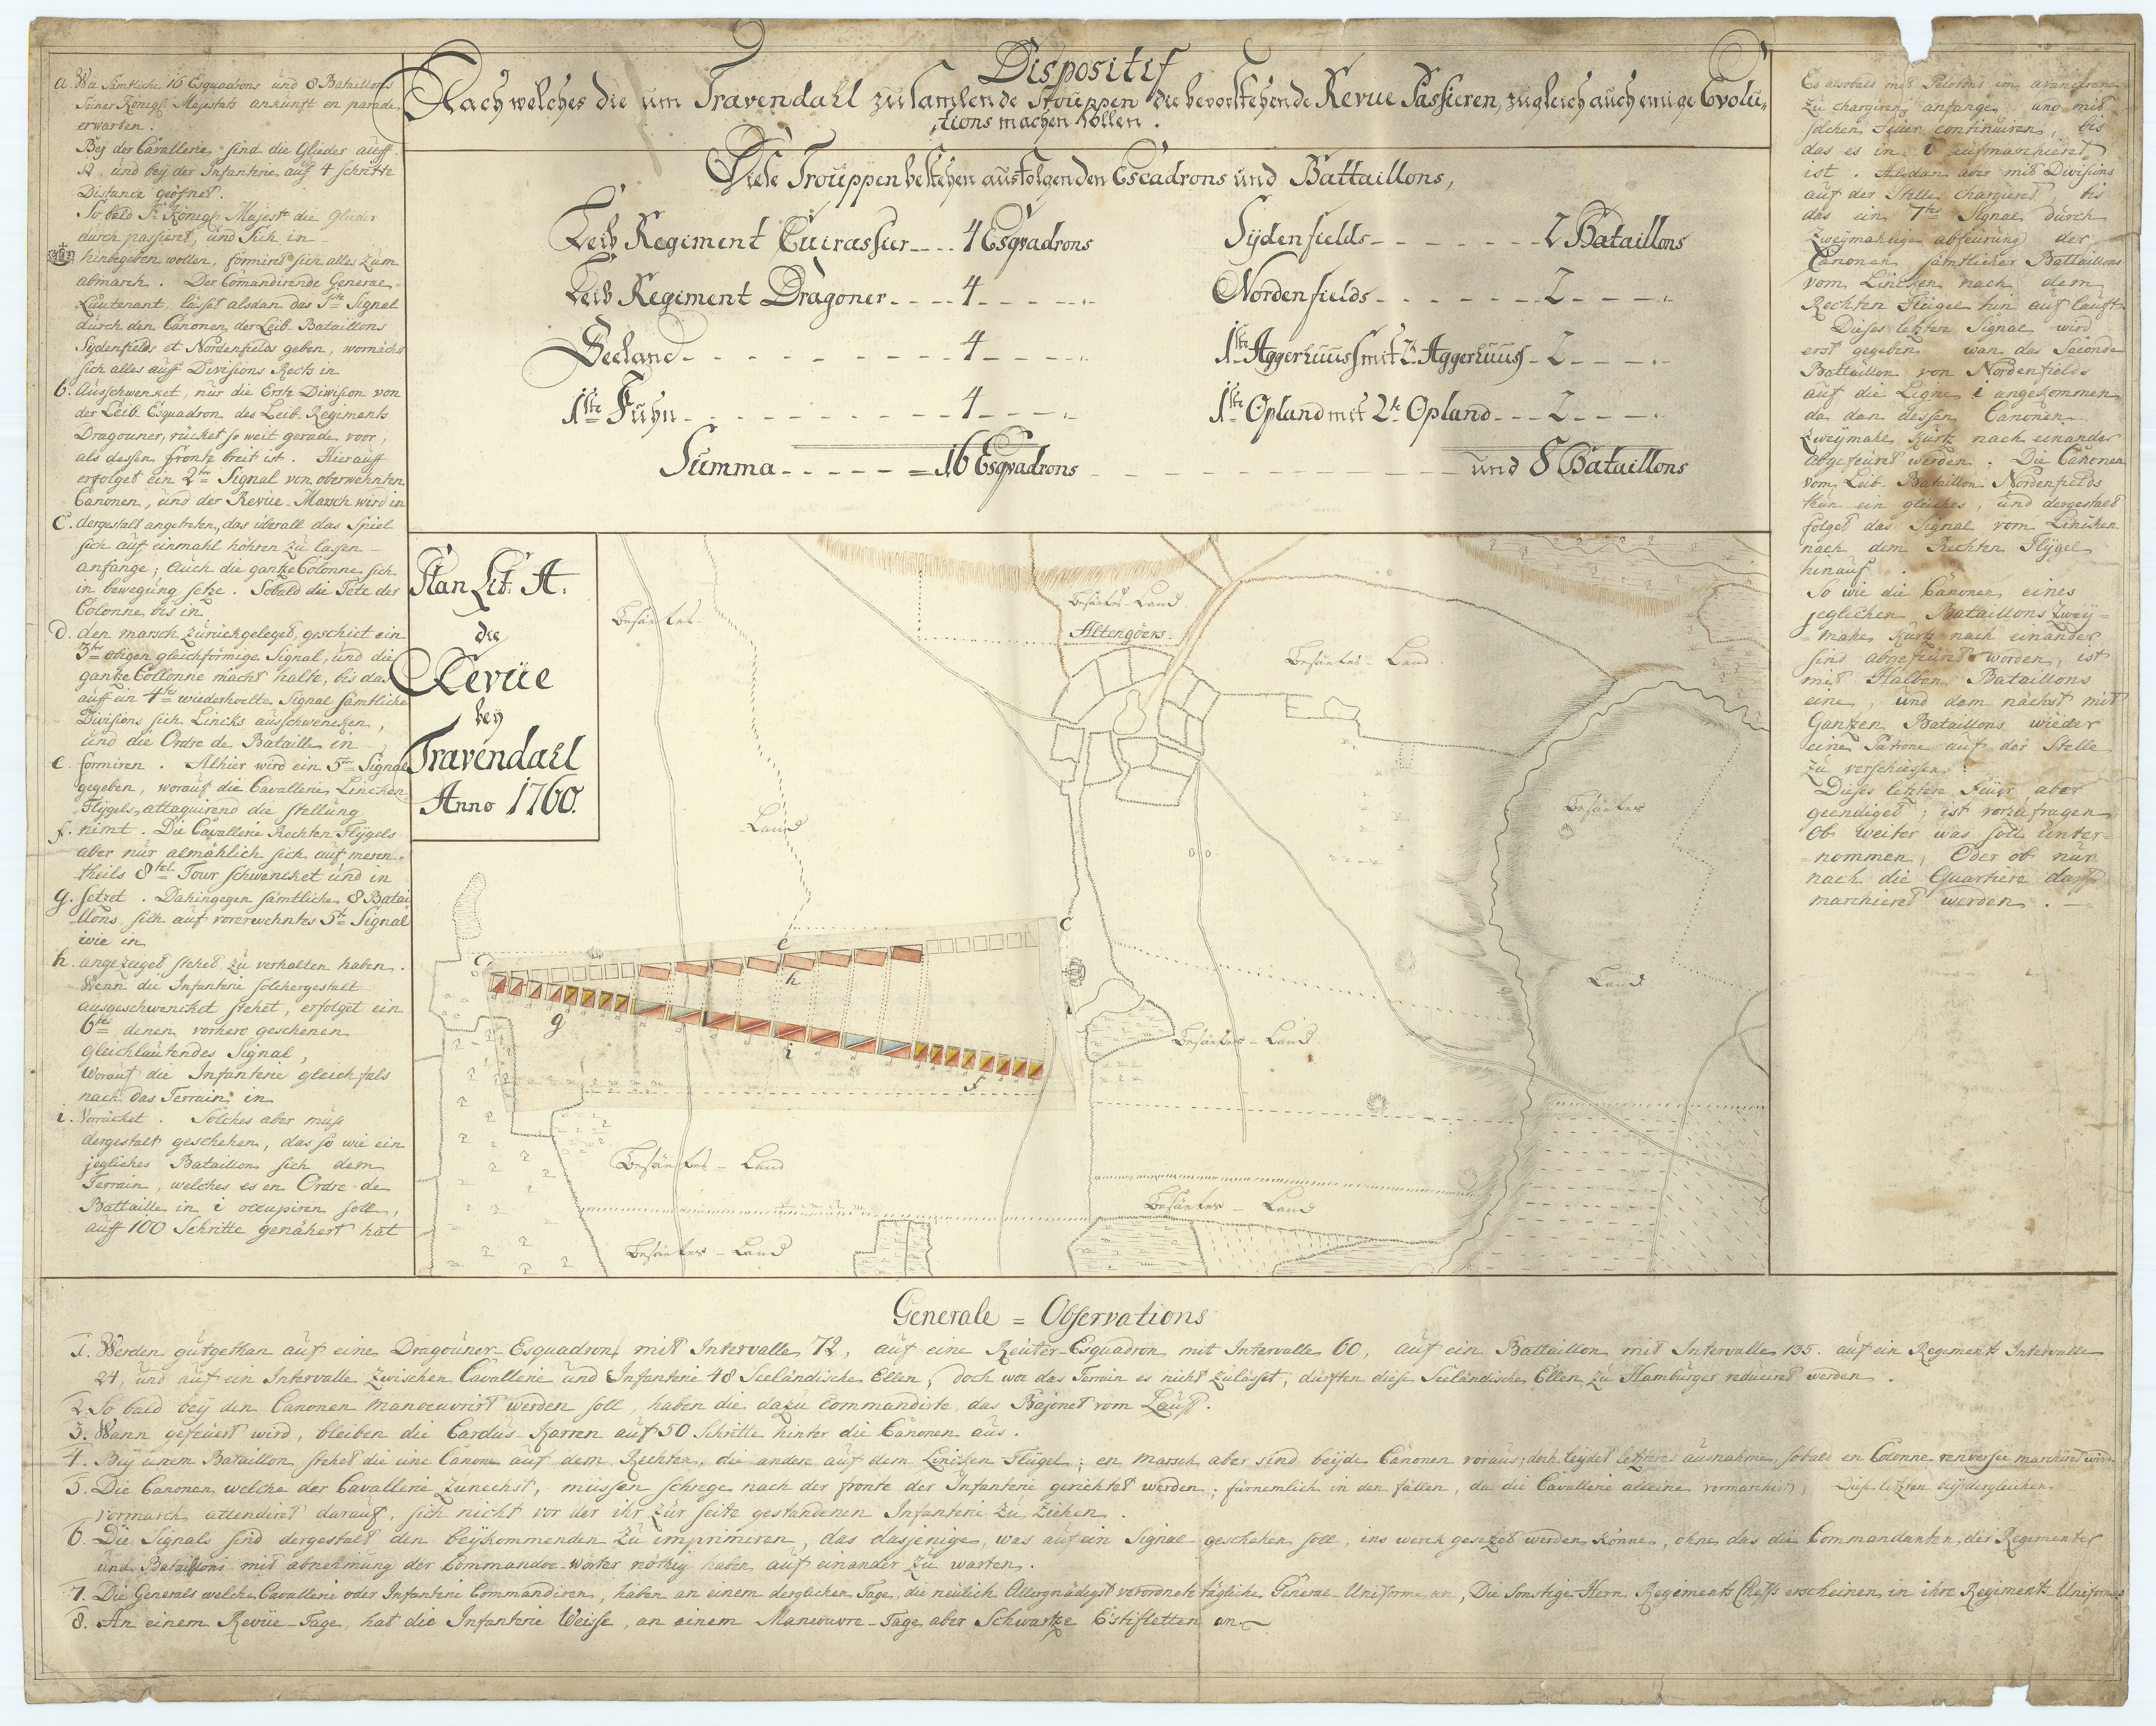 Dispositif
Nach welches die um Travendahl zu samlende Trouppen die bevorstehende Revue Passieren, zugleich auch einige Evolu-
tions machen sollen.
Diese Trouppen bestehen aus folgenden Escadrons und Battaillons,
Leib Regiment Cuirassier 4 Esqvadrons
Leib Regiment Dragoner 4
Seeland 4
1ste Fühn 4
Summa = 16 Esqvadrons
Sydenfields 2 Bataillons
Nordenfields 2
1ste Aggerhuuss mit 2te Aggerhuuss 2
1ste Opland mit 2te Opland 2
und 8 Bataillons
a. Wie sämtliche 16 Esquadrons und 8 Bataillons
Seiner Königl: Majestæts ankunft en parade
erwarten.
Beÿ der Cavallerie sind die Glieder auff
12, und beÿ der Infanterie auf 4 schritte
Distance geöfnet.
So bald Sr Königl: Majestt die Glieder
durch passieret, und Sich in
hinbegeben wollen, formiret sich alles zum
abmarch. Der Comandirende General-
Lieutenant, lässet alsdan das 1ste Signal
durch den Canonen der Leib Bataillons
Sydenfields et Nordenfields geben, wornächst
sich alles auff Divisions Rechts in
b. Ausschwenket, nur die Erste Division von
der Leib Esquadron des Leib Regiments
Dragouner, rücket so weit gerade voor,
als dessen fronte breit ist. Hierauff
erfolget ein 2te Signal von oberwehnten
Canonen, und der Revüe-Marsch wird in
C. dergestalt angetreten, das überall das Spiel
sich auf einmahl höhren zu lassen
anfange; auch die gantze Colonne sich
in bewegung setze. Sobald die Tete der
Colonne bis in
d. den marsch zurückgeleget, geschiet ein
3te obigen gleichförmige Signal, und die
gantze Collonne macht halte, bis das
auff ein 4te wiederhoelte Signal sämtliche
Divisions sich Lincks ausschwencken,
und die Ordre de Bataille in
e. formiren. Alhier wird ein 5te Signal
gegeben, worauf die Cavallerie Lincken
Flÿgels, attaquirend die stellung
f. nimt. Die Cavallerie Rechten Flÿgels
aber nur almählich sich auf meren-
theils 8tel Tour schwencket und in
g. setzet. Dahingegen sämtliche 8 Batai-
llons, sich auf vorerwehntes 5te Signal
wie in
h. angezeiget stehet zu verhalten haben.
Wenn die Infanterie solchergestalt
ausgeschwencket stehet, erfolget ein
6tes denen vorhero geschenen
gleichlautendes Signal,
Worauf die Infanterie gleichfals
nach das Terrain in
i. Vorrücket. Solches aber muss
dergestalt geschehen, das so wie ein
jegliches Bataillon sich dem
Terrain, welches es en Ordre de
Battaille in i occupiren soll,
auff 100 Schritte genähert hat
Plan Lit: A.
die
Revüe
beÿ
Travendahl
Anno 1760.
Besäetes
Land
Besäetes-Land
Altengöers.
Besäetes-Land
Besäetes
Land
C
e
h
g
i
f
Besäetes-Land
Besäetes-Land
Besäetes-Land
Besäetes-Land
Es alsobald mit Pelotons im avanciren
zu chargiren anfange, und mit
solchen Feuer continuiren, bis
das es in i aufmarchieret
ist. Alsdan aber mit Divisions
auf der Stelle chargieret, bis
das ein 7tes Signal durch
zweÿmahlige abfeürung der
Canonen sämtlicher Battaillons
vom Lincken nach dem
Rechten Flügel hin auf lauft.
Dieses letztere Signal wird
erst gegeben wan das Seconde
Battaillon von Nordenfields
auf die Ligne i angekommen
da dan dessen Canonen
zweÿmahl kurtz nach einander
abgefeüret werden. Die Canonen
vom Leib Bataillon Nordenfields
thun ein gleiches, und dergestalt
folget das Signal vom Lincken
nach dem Rechten Flÿgel
hinauf.
So wie die Canonen eines
jeglichen Bataillons zweÿ-
mahl kurtz nach einander
sind abgefeüret worden, ist
mit Halben Bataillons
eine, und dem nächst mit
Gantzen Bataillons wieder
eine Patrone auf der Stelle
zu verschiessen.
Dieses letztere Feüer aber
geendiget; ist vorzufragen
Ob weiter was soll unter-
nommen, Oder ob nun
nach die Quartiere darff
marchieret werden.
Generale = Observations
1. Werden gutgethan auf eine Dragouner Esquadron mit Intervalle 72, auf eine Reuter-Esquadron mit Intervalle 60, auf ein Battaillon mit Intervalle 135. auf ein Regiments Intervalle
24, und auf ein Intervalle zwischen Cavallerie und Infanterie 48 Seeländische Ellen; doch wo das Terrain es nicht zulässet, dürften diese Seeländische Ellen zu Hamburger reduciret werden.
2. So bald beÿ den Canonen manoeuvrirt werden soll, haben die dazu Commandirte, das Bajonet vom Lauff.
3. Wann gefeüert wird, bleiben die Cardus-Karren auf 50 Schritte hinter die Canonen aus.
4. Beÿ einem Bataillon stehet die eine Canone auf dem Rechten, die andere auf dem Lincken Flügel; en marsch aber sind beÿde Canonen voraus; doch leÿdet letzteres ausnahme, sobald en Colonne renversée marchiret wird.
5. Die Canonen welche der Cavallerie zunechst, müssen schrege nach der fronte der Infanterie gerichtet werden; fürnemlich in den fällen, da die Cavallerie alleine vormarchirt, Diese letzten beÿ dergleichen
vormarch attendiret darauf, sich nicht vor der ihr zur seite gestandenen Infanterie zu ziehen.
6. Die Signals sind dergestalt den beÿkommenden zu imprimiren, das dasjenige, was auf ein Signal geschehen soll, ins werck gesetzet werden könne, ohne das die Commandanten der Regimenter
und Bataillons mit abnehmung der Commandoe-wörter nöthig haben auf einander zu warten.
7. Die Generals welche Cavallerie oder Infanterie Commandiren, haben an einem derglichen Tage, die neülich Allergnädigst verordnete tägliche General-Uniforme an, Die Sonstige Hern Regiments Cheffs erscheinen in ihre Regiments Uniformes
8. An einem Revüe-Tage, hat die Infanterie Weisse, an einem Maneuvre-Tage aber Schwartze Estifletten an.